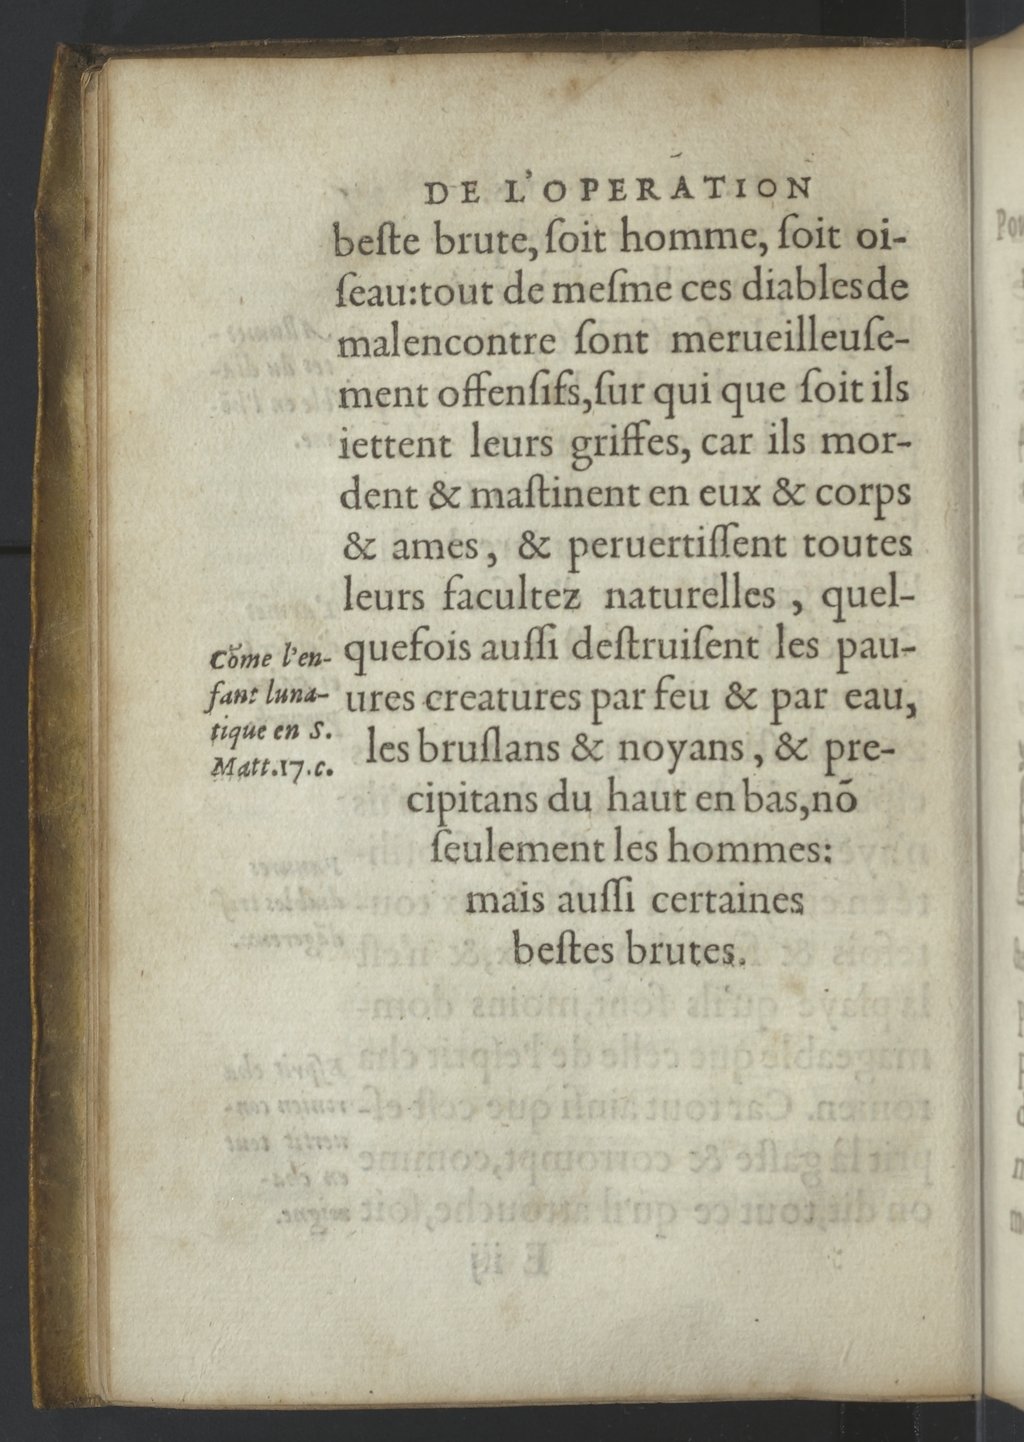 DE L'OPERATION
beſte brute, ſoit homme, ſoit oi-
ſeau:tout de meſme ces diables de
malencontre ſont merueilleuſe-
ment offenſifs,ſur qui que ſoit ils
iettent leurs griffes, car ils mor-
dent & maſtinent en eux & corps
& ames, & peruertiſſent toutes
leurs facultez naturelles , quel-
quefois auſſi deſtruiſent les pau-
ures creatures par feu & par eau,
les bruſlans & noyans , & pre-
cipitans du haut en bas,nō
ſeulement les hommes:
mais auſſi certaines
beſtes brutes.
Cōme l'en-
fant luna-
tique en S.
Matt.17.c.